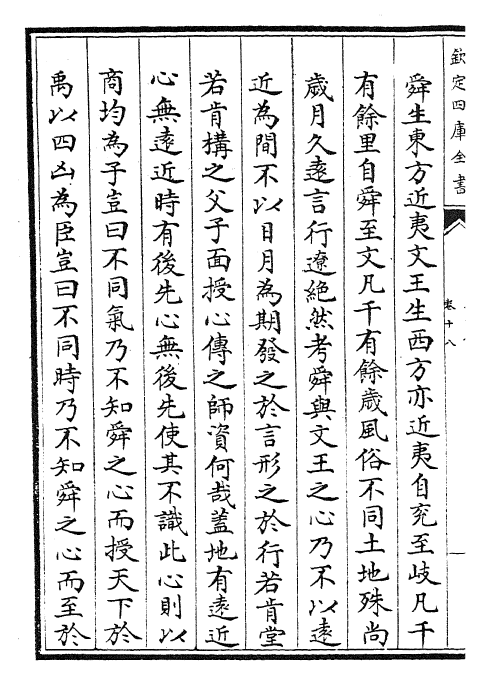 欽定四庫全書
卷十八
舜生東方近夷文王生西方亦近夷自兖至岐凡千
有餘里自舜至文凡千有餘歲風俗不同土地殊尚
歲月久遠言行遼絶然考舜與文王之心乃不以遠
近為間不以日月為期發之於言形之於行若肯堂
若肯構之父子面授心傳之師資何哉蓋地有遠近
心無遠近時有後先心無後先使其不識此心則以
商均為子豈曰不同氣乃不知舜之心而授天下於
禹以四凶為臣豈曰不同時乃不知舜之心而至於